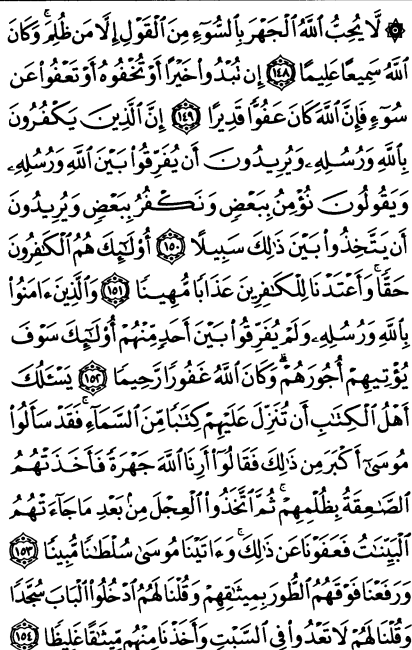 ۞ لَّا يُحِبُّ ٱللَّهُ ٱلْجَهْرَ بِٱلسُّوٓءِ مِنَ ٱلْقَوْلِ إِلَّا مَن ظُلِمَ ۚ وَكَانَ
ٱللَّهُ سَمِيعًا عَلِيمًا ١٤٨ إِن تُبْدُوا۟ خَيْرًا أَوْ تُخْفُوهُ أَوْ تَعْفُوا۟ عَن
سُوٓءٍ فَإِنَّ ٱللَّهَ كَانَ عَفُوًّا قَدِيرًا ١٤٩ إِنَّ ٱلَّذِينَ يَكْفُرُونَ
بِٱللَّهِ وَرُسُلِهِۦ وَيُرِيدُونَ أَن يُفَرِّقُوا۟ بَيْنَ ٱللَّهِ وَرُسُلِهِۦ
وَيَقُولُونَ نُؤْمِنُ بِبَعْضٍ وَنَكْفُرُ بِبَعْضٍ وَيُرِيدُونَ
أَن يَتَّخِذُوا۟ بَيْنَ ذَٰلِكَ سَبِيلًا ١٥٠ أُو۟لَـٰٓئِكَ هُمُ ٱلْكَـٰفِرُونَ
حَقًّا ۚ وَأَعْتَدْنَا لِلْكَـٰفِرِينَ عَذَابًا مُّهِينًا ١٥١ وَٱلَّذِينَ ءَامَنُوا۟
بِٱللَّهِ وَرُسُلِهِۦ وَلَمْ يُفَرِّقُوا۟ بَيْنَ أَحَدٍ مِّنْهُمْ أُو۟لَـٰٓئِكَ سَوْفَ
يُؤْتِيهِمْ أُجُورَهُمْ ۗ وَكَانَ ٱللَّهُ غَفُورًا رَّحِيمًا ١٥٢ يَسْـَٔلُكَ
أَهْلُ ٱلْكِتَـٰبِ أَن تُنَزِّلَ عَلَيْهِمْ كِتَـٰبًا مِّنَ ٱلسَّمَآءِ ۚ فَقَدْ سَأَلُوا۟
مُوسَىٰٓ أَكْبَرَ مِن ذَٰلِكَ فَقَالُوٓا۟ أَرِنَا ٱللَّهَ جَهْرَةً فَأَخَذَتْهُمُ
ٱلصَّـٰعِقَةُ بِظُلْمِهِمْ ۚ ثُمَّ ٱتَّخَذُوا۟ ٱلْعِجْلَ مِنۢ بَعْدِ مَا جَآءَتْهُمُ
ٱلْبَيِّنَـٰتُ فَعَفَوْنَا عَن ذَٰلِكَ ۚ وَءَاتَيْنَا مُوسَىٰ سُلْطَـٰنًا مُّبِينًا ١٥٣
وَرَفَعْنَا فَوْقَهُمُ ٱلطُّورَ بِمِيثَـٰقِهِمْ وَقُلْنَا لَهُمُ ٱدْخُلُوا۟ ٱلْبَابَ سُجَّدًا
وَقُلْنَا لَهُمْ لَا تَعْدُوا۟ فِى ٱلسَّبْتِ وَأَخَذْنَا مِنْهُم مِّيثَـٰقًا غَلِيظًا ١٥٤